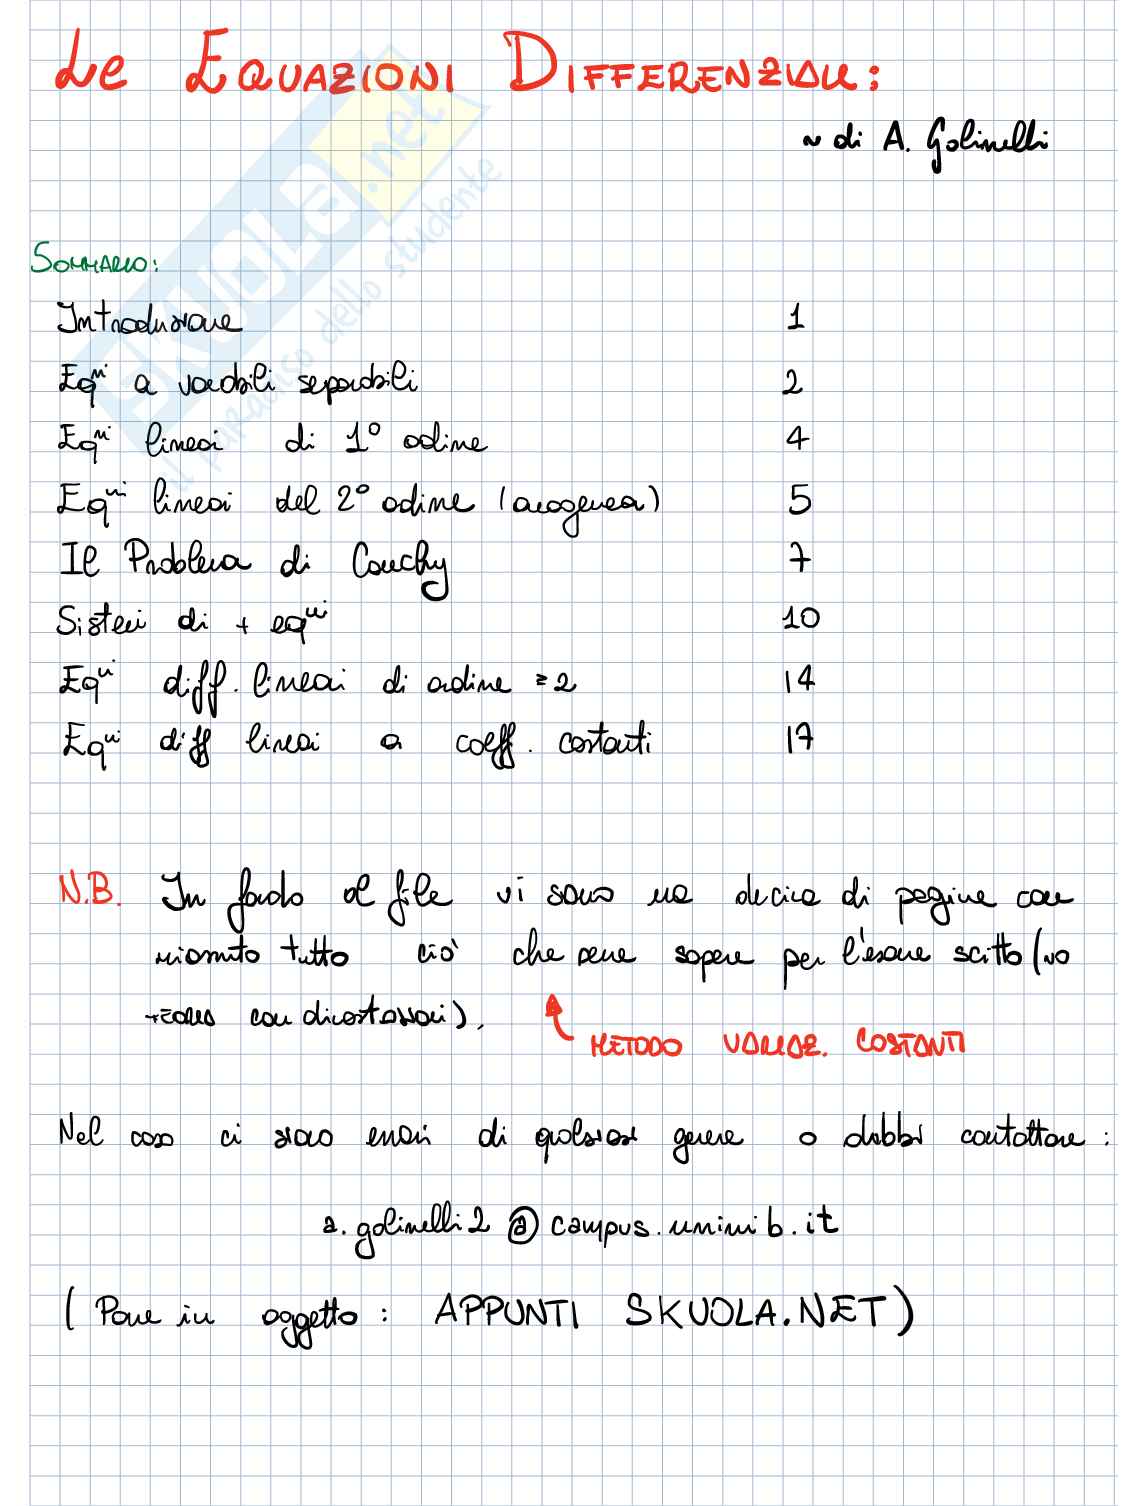 Le Equazioni Differenziali:
~ di A. Golinelli
Sommario:
Introduzione 1
Eqni a variabili separabili 2
Eqni lineari di 1° ordine 4
Eqni lineari del 2° ordine (omogenea) 5
Il Problema di Cauchy 7
Sistemi di + eqni 10
Eqni diff. lineari di ordine ≥2 14
Eqni diff lineari a coeff. costanti 17
N.B. In fondo al file vi sono una decina di pagine con
riassunto tutto ciò che serve sapere per l'esame scritto (no
teoria con dimostrazioni).
METODO VARIAZ. COSTANTI
Nel caso ci siano errori di qualsiasi genere o dubbi contattare:
a.golinelli2@campus.unimib.it
(Porre in oggetto: APPUNTI SKUOLA.NET)
SKUOLA.net
il paradiso dello studente